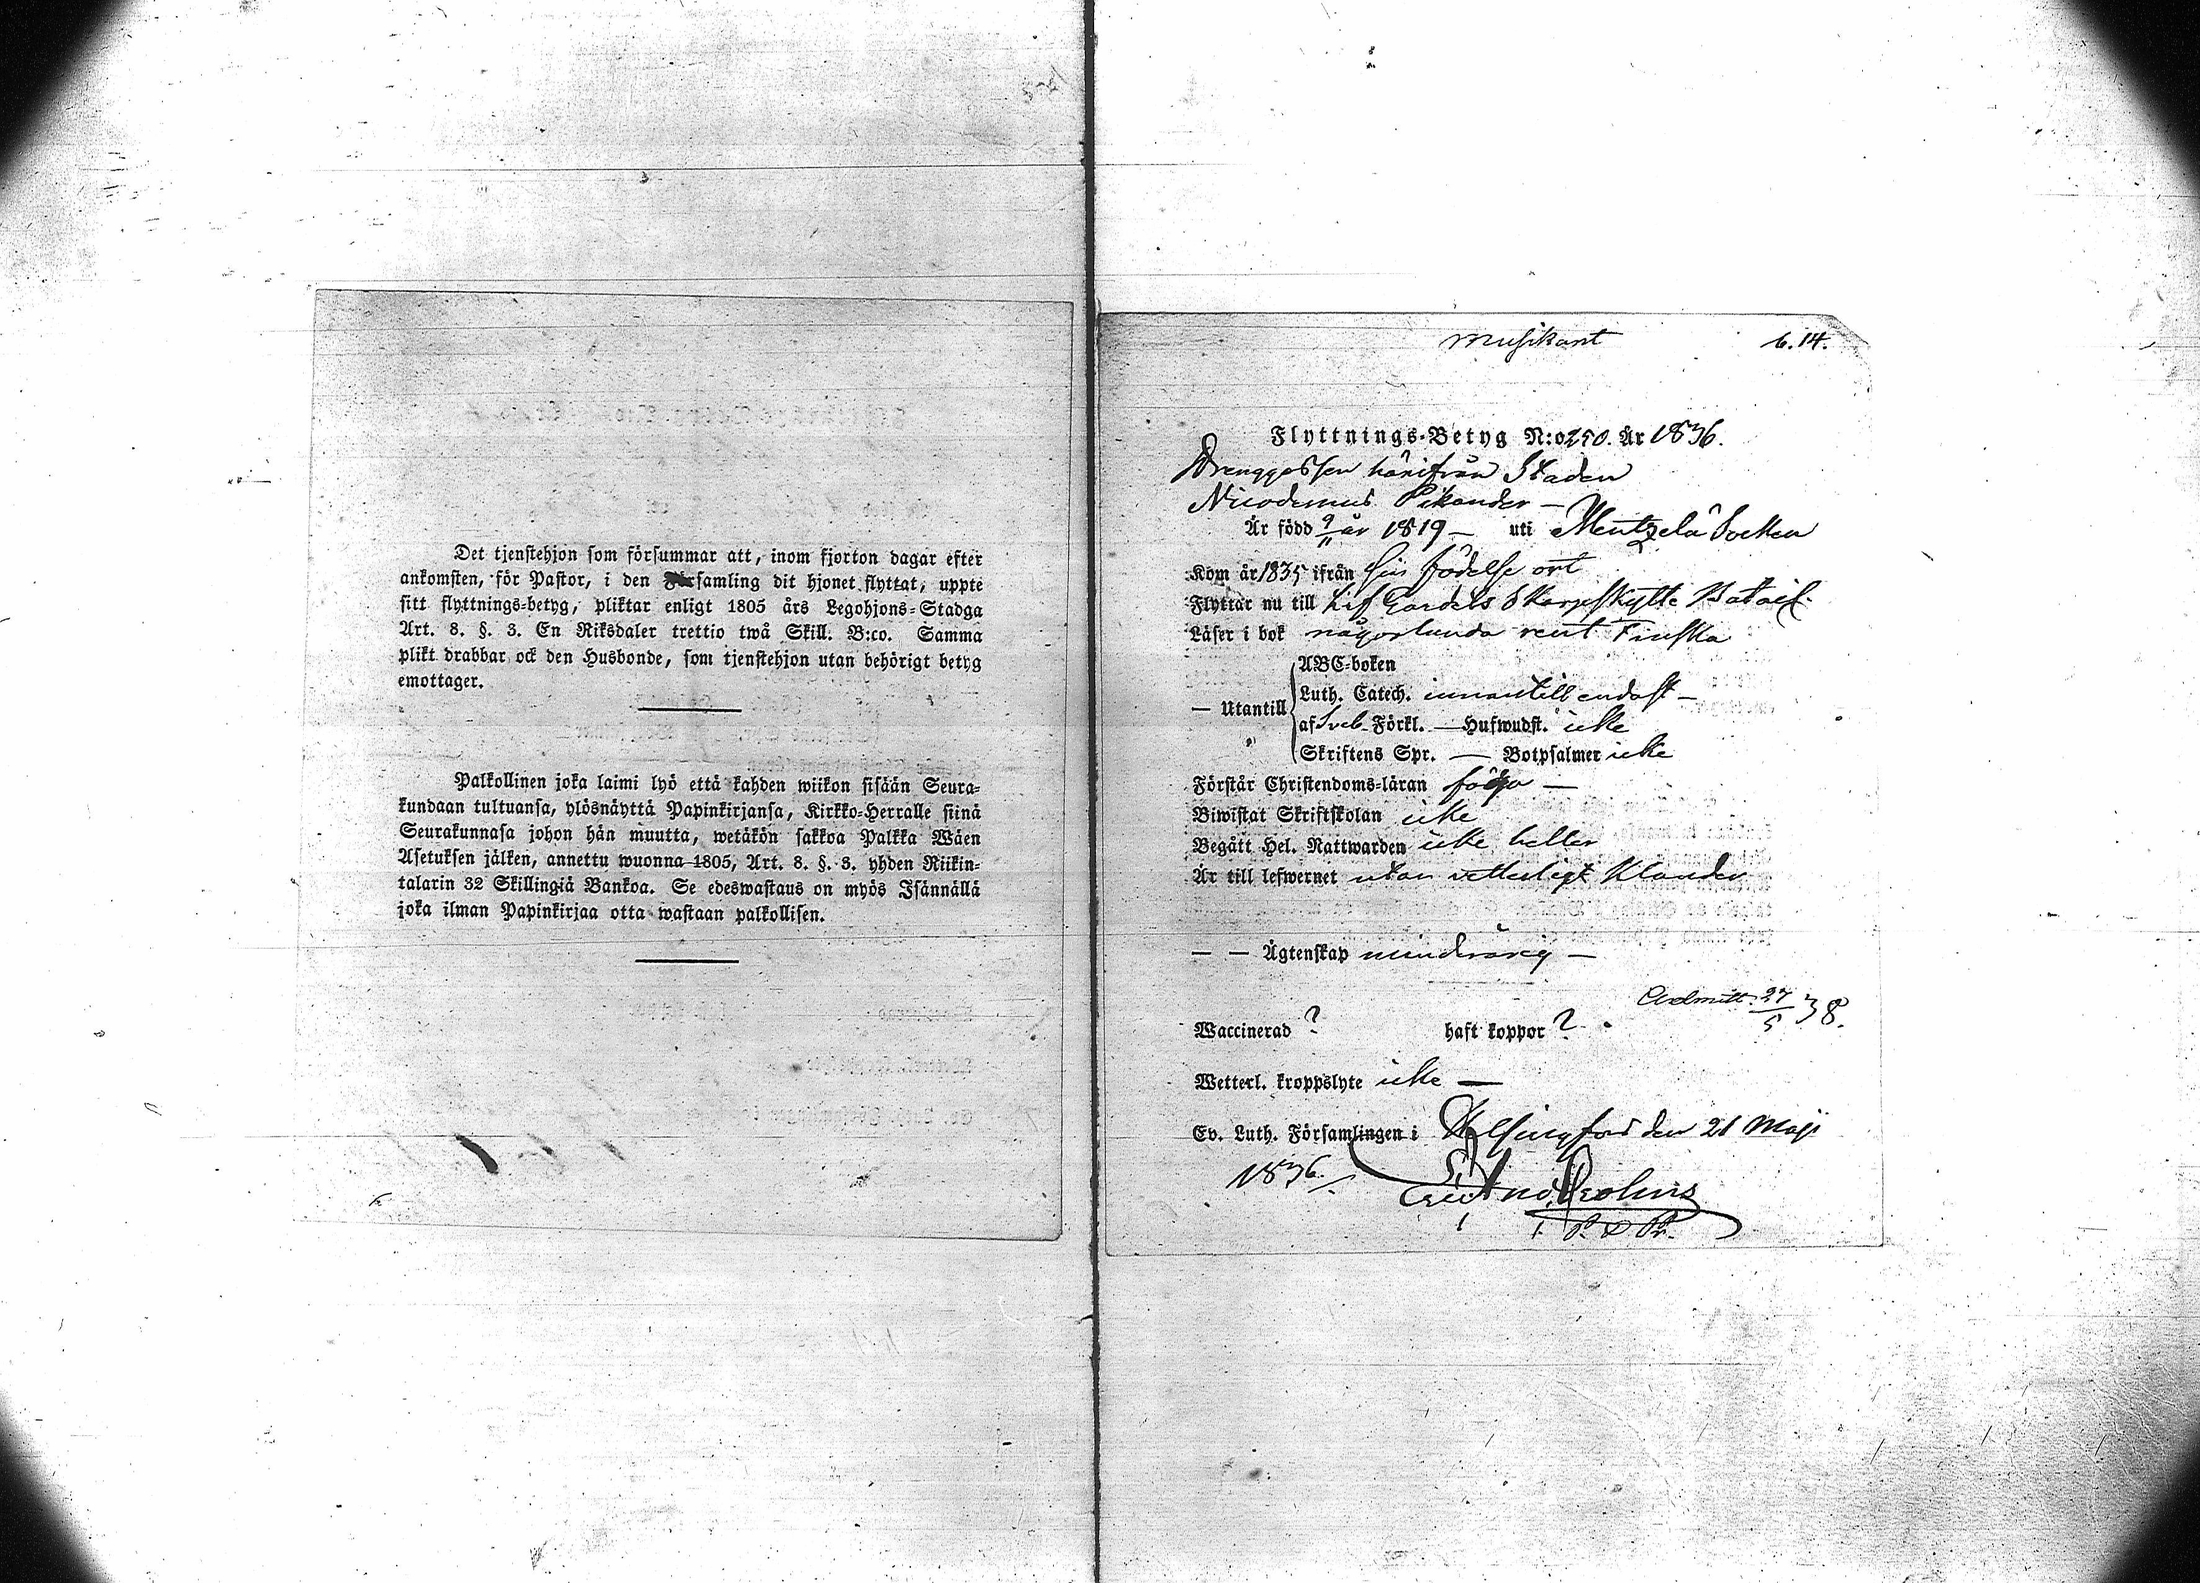 Det tjenstehjon som försummar att, inom fjorton dagar efter
ankomsten, för Pastor, i den Församling dit hjonet flyttat, uppte
sitt flyttnings-betyg, pliktar enligt 1805 års Legohjons-Stadga
Art. 8. §. 3. En Riksdaler trettio twå Skill. B:co. Samma
plikt drabbar ock den Husbonde, som tjenstehjon utan behörigt betyg
emottager.
Palkollinen joka laimi lyö että kahden wiikon sisään Seura-
kundaan tultuansa, ylösnäyttä Papinkirjansa, Kirkko-Herralle siinä
Seurakunnasa johon hän muutta, wetäkön sakkoa Palkka Wäen
Asetuksen jälken, annettu wuonna 1805, Art. 8. §. 3. yhden Riikin-
talarin 32 Skillingiä Bankoa. Se edeswastaus on myös Isännällä
joka ilman Papinkirjaa otta wastaan palkollisen.
Musikant 6.14.
Flyttnings-Betyg N:o 250. År 1836.
Drenggossen härifrån Staden
Nicodemus Pikander —
Är född 9/11 år 1819 — uti Mentzelä Socken
Kom år 1835 ifrån sin födelse ort
Flyttar nu till Lif Gardets Skarpskytte Batail.
Läser i bok någorlunda rent Finska
ABC-boken
— Utantill Luth. Catech. innantill endast —
af Sveb. Förkl. — Hufwudst. icke
Skriftens Spr. — Botpsalmer icke
Förstår Christendoms-läran föga —
Biwistat Skriftskolan icke
Begått Hel. Nattwarden icke heller
Är till lefwernet utan vetterligt klander
— — Ägtenskap minderårig —
Admitt. 27/5 38.
Waccinerad ? haft koppor ?
Wetterl. kroppslyte icke —
Ev. Luth. Församlingen i Helsingfors den 21 Maji
1836.